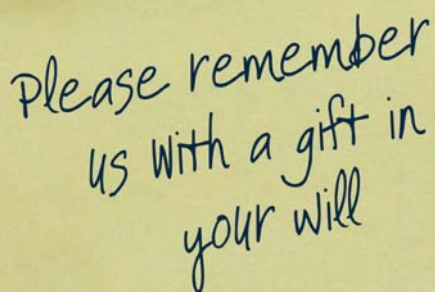 Please remember
us with a gift in
your will